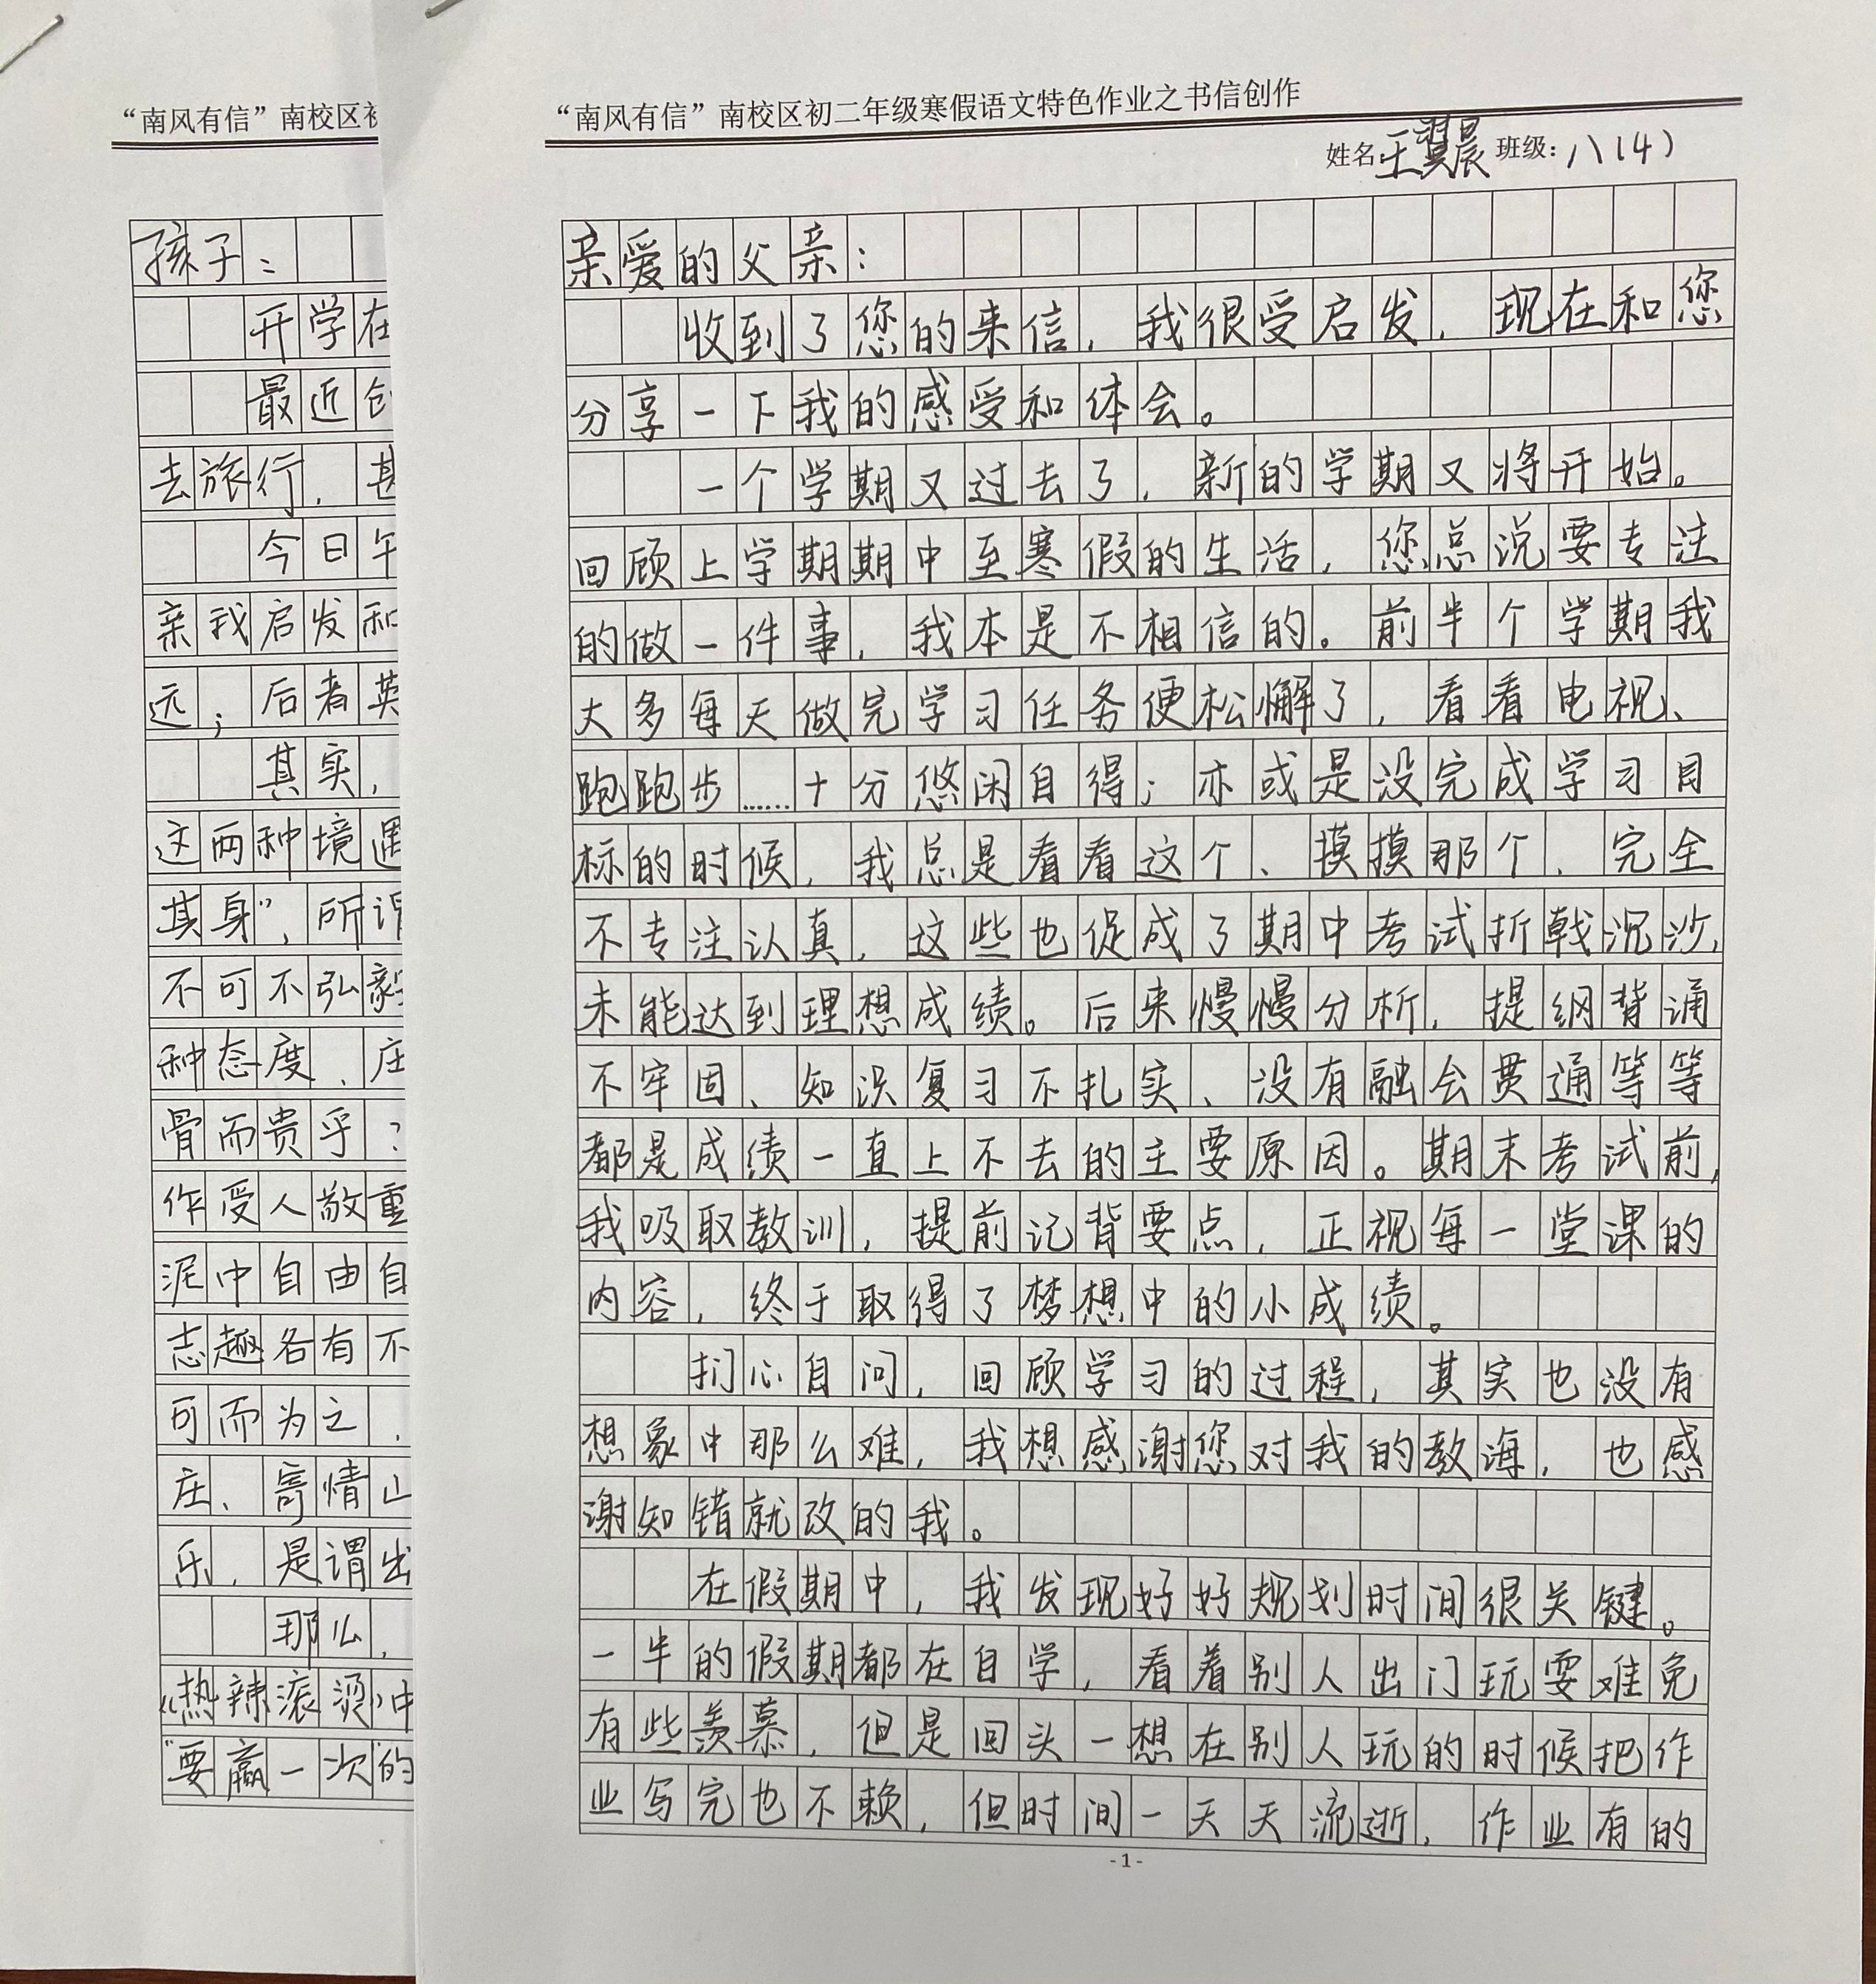 “南风有信”南校区初
孩子：
开学在
最近创
去旅行，甚
今日午
亲我启发和
远；后者英
其实，
这两种境遇
其身”，所谓
不可不弘毅
种态度，庄
骨而贵乎？
作受人敬重
泥中自由自
志趣各有不
可而为之，
庄、寄情山
乐，是谓出
那么，
《热辣滚烫》中
“要赢一次”的
“南风有信”南校区初二年级寒假语文特色作业之书信创作
姓名 王翼晨 班级：八（4）
亲爱的父亲：
收到了您的来信，我很受启发，现在和您
分享一下我的感受和体会。
一个学期又过去了，新的学期又将开始。
回顾上学期期中至寒假的生活，您总说要专注
的做一件事，我本是不相信的。前半个学期我
大多每天做完学习任务便松懈了，看看电视、
跑跑步……十分悠闲自得；亦或是没完成学习目
标的时候，我总是看看这个、摸摸那个，完全
不专注认真，这些也促成了期中考试折戟沉沙，
未能达到理想成绩。后来慢慢分析，提纲背诵
不牢固、知识复习不扎实、没有融会贯通等等
都是成绩一直上不去的主要原因。期末考试前，
我吸取教训，提前记背要点，正视每一堂课的
内容，终于取得了梦想中的小成绩。
扪心自问，回顾学习的过程，其实也没有
想象中那么难，我想感谢您对我的教诲，也感
谢知错就改的我。
在假期中，我发现好好规划时间很关键。
一半的假期都在自学，看着别人出门玩耍难免
有些羡慕，但是回头一想在别人玩的时候把作
业写完也不赖，但时间一天天流逝，作业有的
-1-